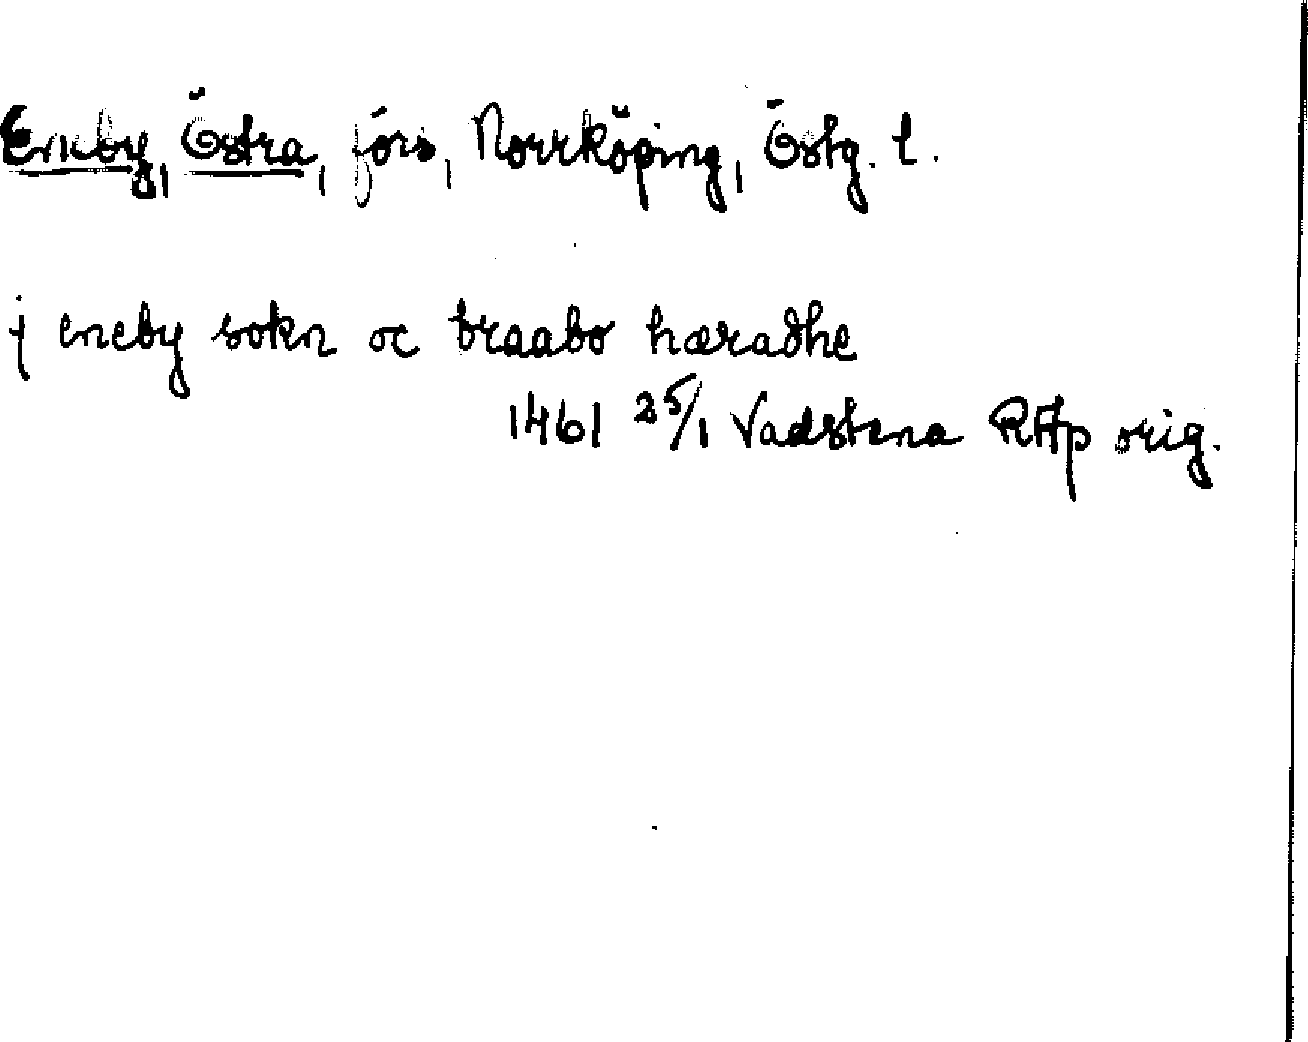 Eneby, Östra, förs, Norrköping, Östg. l.
j eneby sokn oc braabo hæradhe
1461 25/1 Vadstena RAp orig.